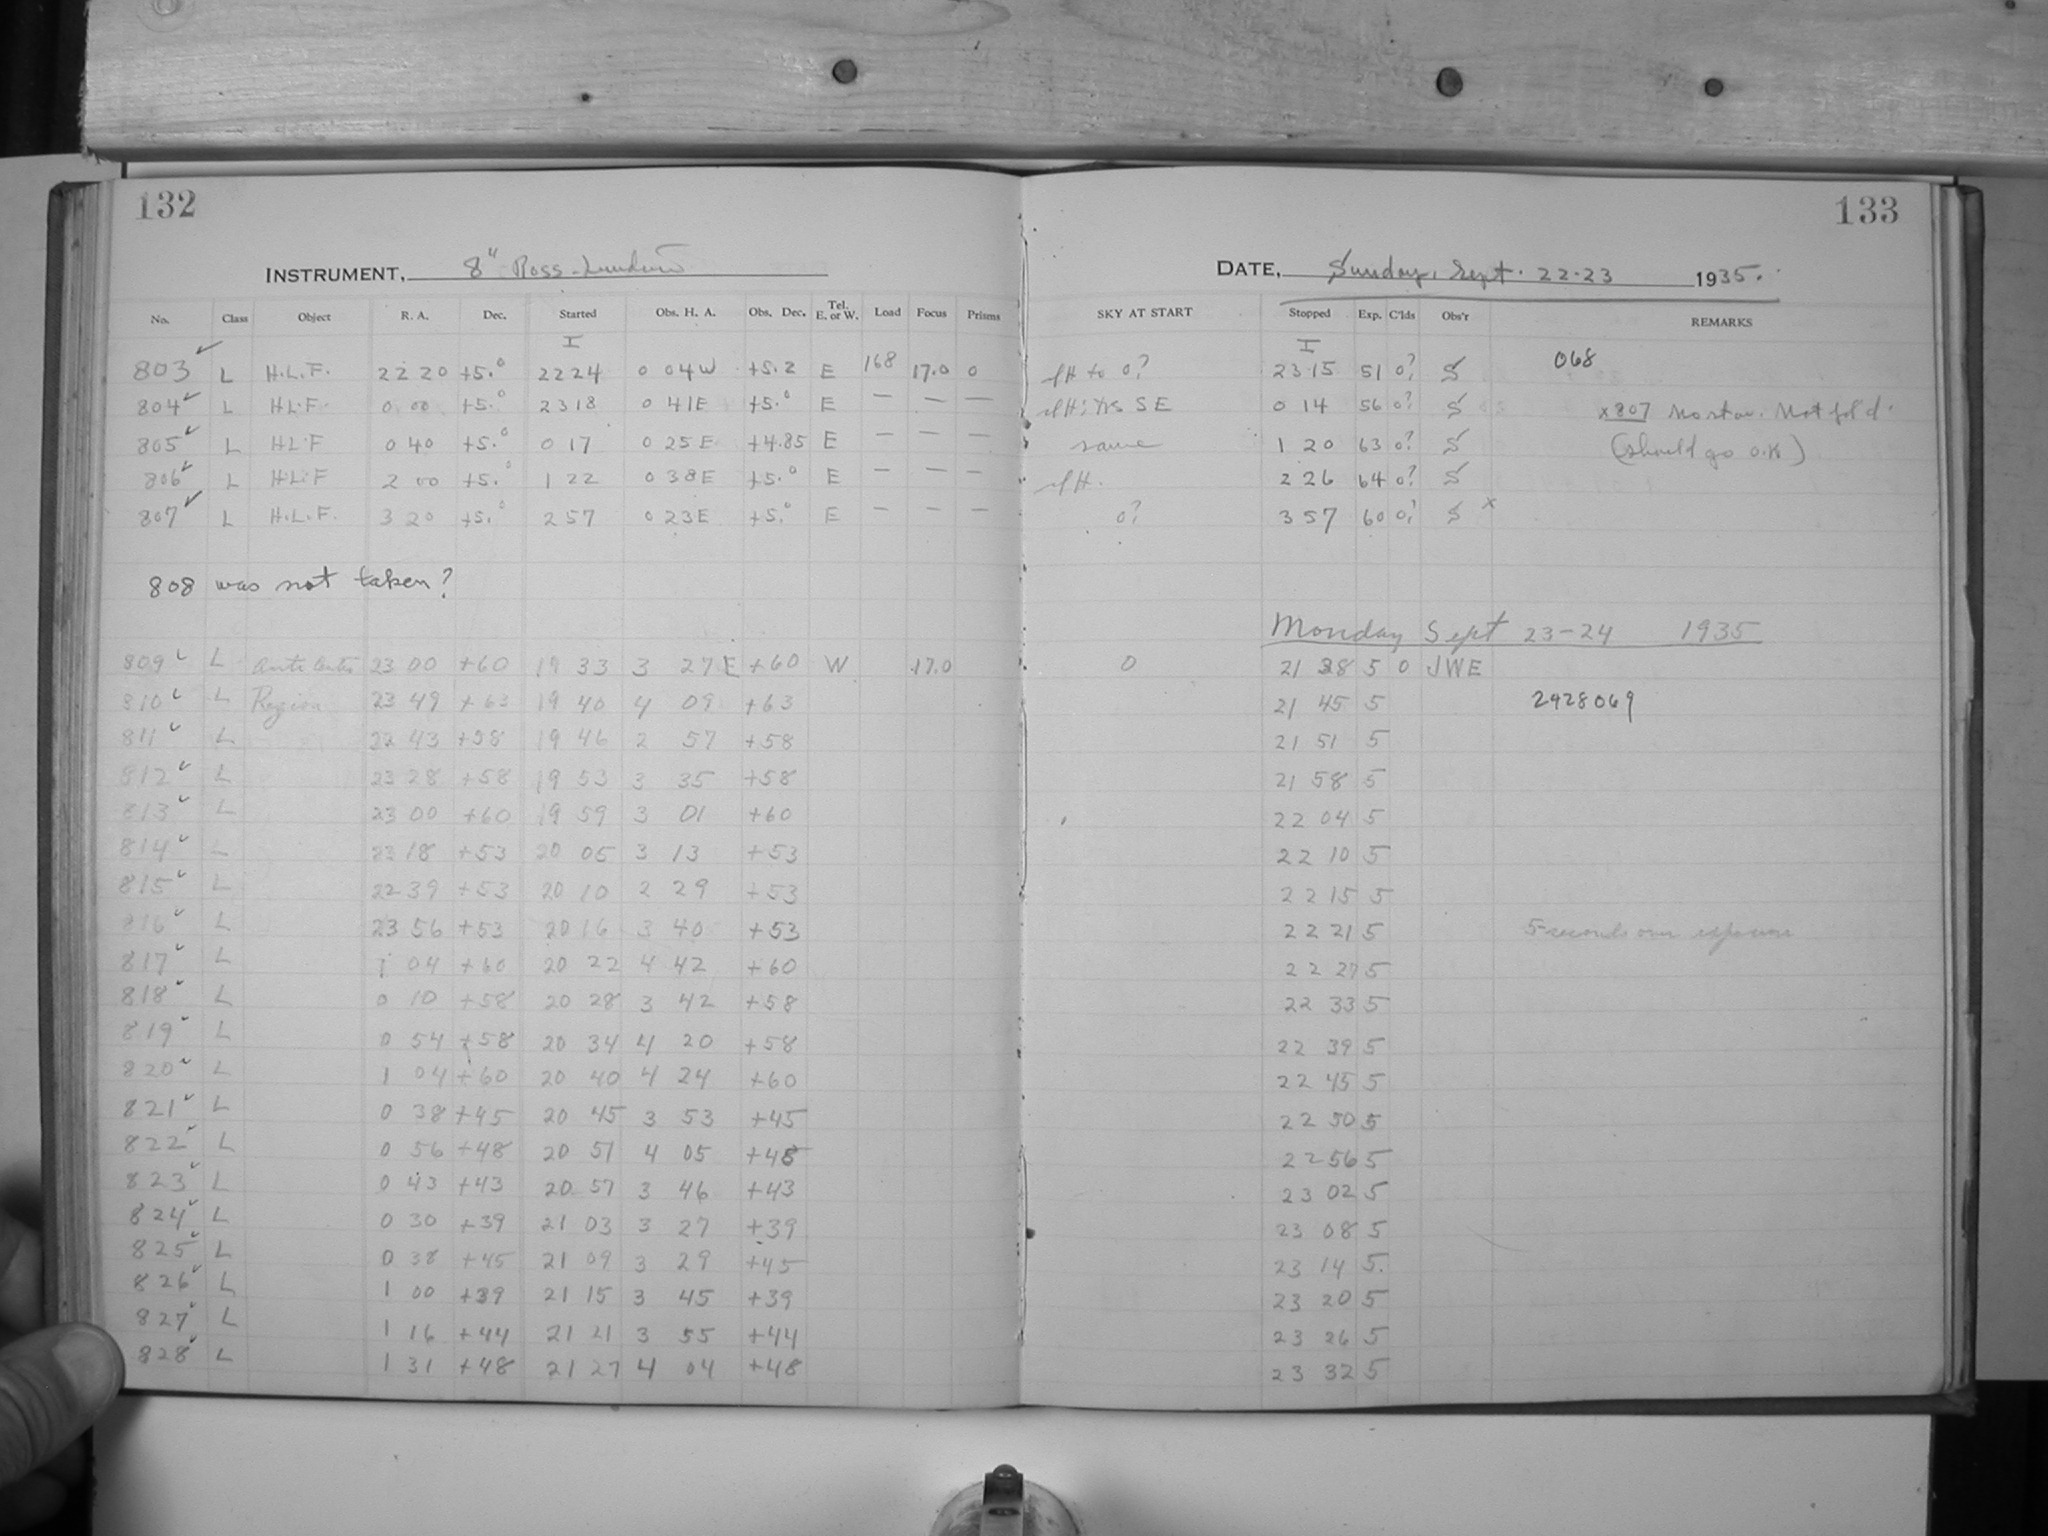 132
INSTRUMENT, 8" Ross-Lundin
No. Class Object R. A. Dec. Started Obs. H. A. Obs. Dec. Tel. E. or W. Load Focus Prisms
I
803 ✓ L H.L.F. 22 20 +5.° 22 24 0 04W +5.2 E 168 17.0 0
804 ✓ L H.L.F. 0 00 +5.° 23 18 0 41E +5.° E — — —
805 ✓ L HLF 0 40 +5.° 0 17 0 25E +4.85 E — — —
806 ✓ L H.L.F 2 00 +5.° 1 22 0 38E +5.° E — — —
807 ✓ L H.L.F. 3 20 +5.° 2 57 0 23E +5.° E — — —
808 was not taken?
809 ✓ L 23 00 +60 19 33 3 27E +60 W 17.0
810 ✓ L Region 23 49 +63 19 40 4 09 +63
811 ✓ L 22 43 +58 19 46 2 57 +58
812 ✓ L 23 28 +58 19 53 3 35 +58
813 ✓ L 23 00 +60 19 59 3 01 +60
814 ✓ L 23 18 +53 20 05 3 13 +53
815 ✓ L 22 39 +53 20 10 2 29 +53
816 ✓ L 23 56 +53 20 16 3 40 +53
817 ✓ L 1 04 +60 20 22 4 42 +60
818 ✓ L 0 10 +58 20 28 3 42 +58
819 ✓ L 0 54 +58 20 34 4 20 +58
820 ✓ L 1 04 +60 20 40 4 24 +60
821 ✓ L 0 38 +45 20 45 3 53 +45
822 ✓ L 0 56 +48 20 51 4 05 +48
823 ✓ L 0 43 +43 20 57 3 46 +43
824 ✓ L 0 30 +39 21 03 3 27 +39
825 ✓ L 0 38 +45 21 09 3 29 +45
826 ✓ L 1 00 +39 21 15 3 45 +39
827 ✓ L 1 16 +44 21 21 3 55 +44
828 ✓ L 1 31 +48 21 27 4 04 +48
133
DATE, Sunday, Sept. 22-23 1935.
SKY AT START Stopped Exp. C'lds Obs'r REMARKS
I
to 0? 23 15 51 0? S 068
SE 0 14 56 0? S x807 Not fol'd.
same 1 20 63 0? S (should go O.K.)
2 26 64 0? S
0? 3 57 60 0? S x
Monday Sept 23-24 1935
0 21 38 5 0 JWE
21 45 5 2428069
21 51 5
21 58 5
22 04 5
22 10 5
22 15 5
22 21 5 5 seconds over exposure
22 27 5
22 33 5
22 39 5
22 45 5
22 50 5
22 56 5
23 02 5
23 08 5
23 14 5.
23 20 5
23 26 5
23 32 5